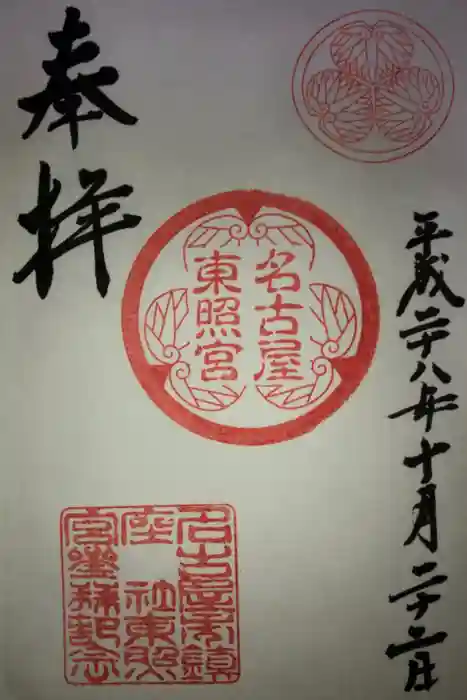 奉拝
名古屋
東照宮
平成二十八年十月二十二日
名古屋市鎮
座 社東照
宮參拜記念